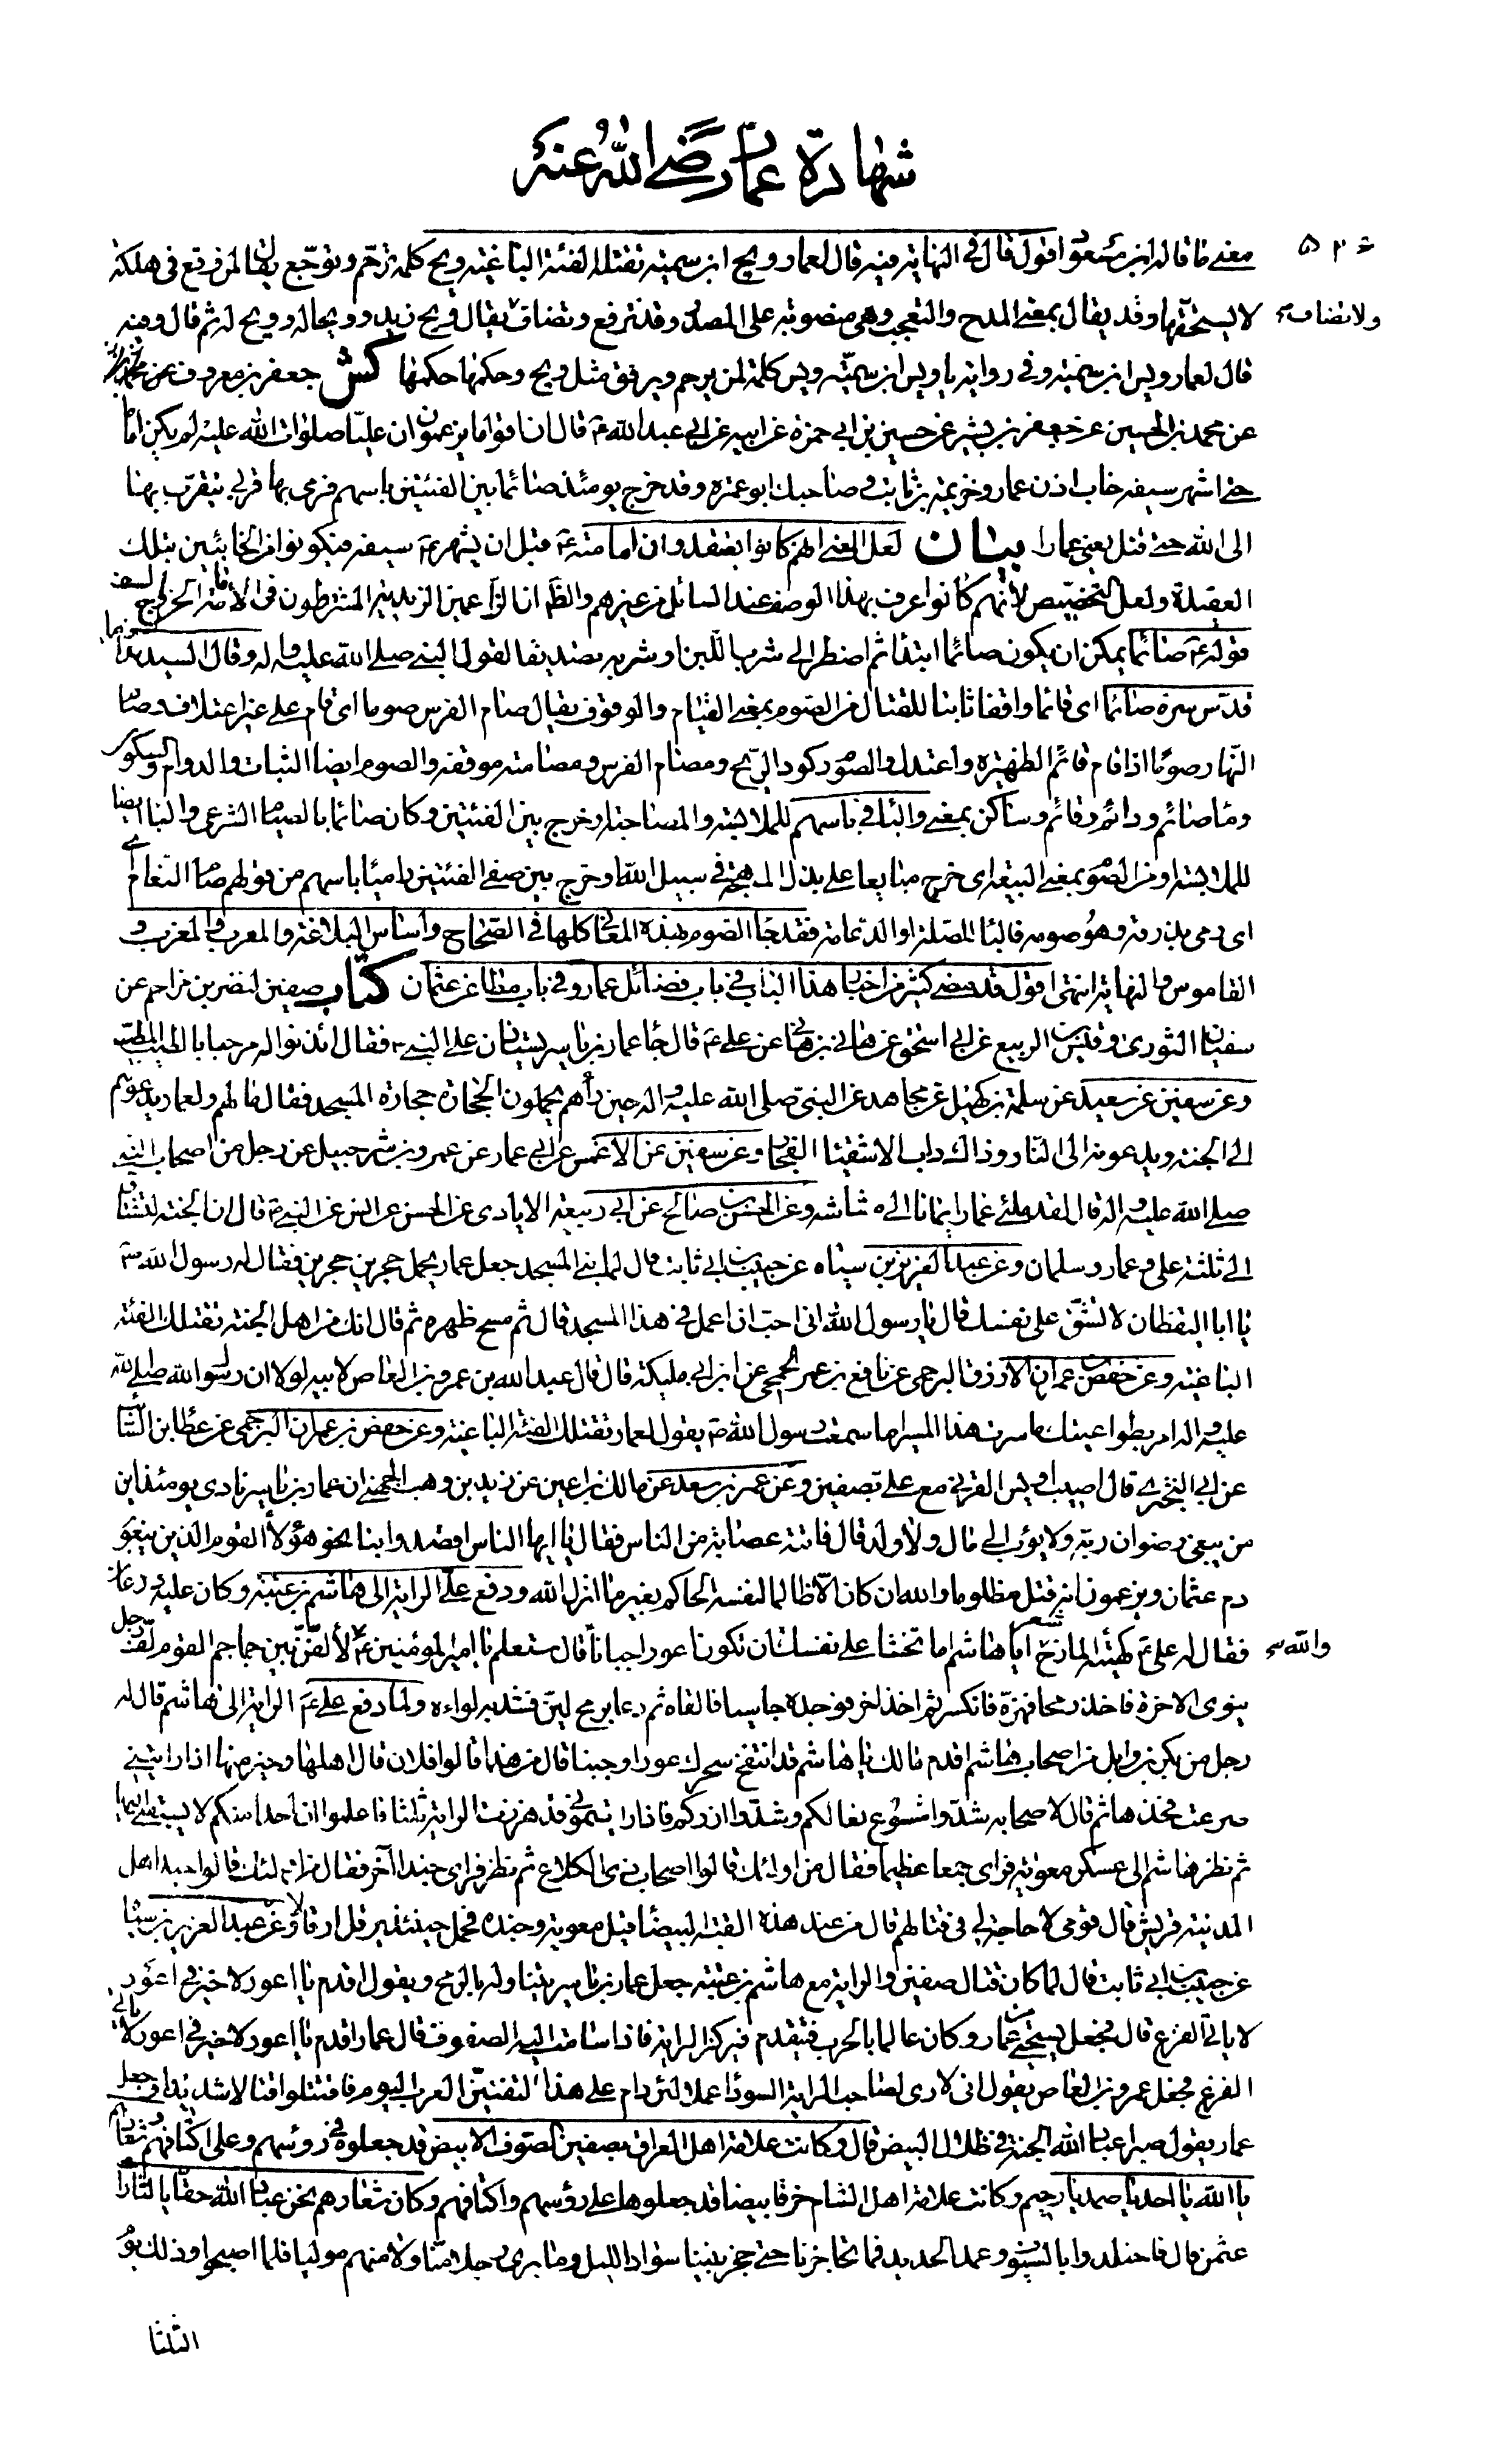 شهادة عمار رضي الله عنه
۵۲۶
معنى ما قاله ابن مسعود اقول قال في النهاية فيه قال لعمار ويح ابن سمية تقتله الفئة الباغية ويح كلمة ترحّم وتوجّع يقال لمن وقع في هلكة
لا يستحقها وقد يقال بمعنى المدح والتعجب وهى منصوبة على المصدر وقد ترفع وتضاف يقال ويح زيد وويحا له وويح له ثم قال ومنه
ولا تضاف
قال لعمار ويس ابن سمية وفي رواية يا ويس ابن سميّة ويس كلمة لمن يرحم ويرفق مثل ويح وحكمها حكمها كش جعفر بن معروف عن محمد
عن محمد بن الحسين عن جعفر بن بشير عن حسين بن ابي حمزة عن ابيه عن ابي عبد الله ع قال ان قوما يزعمون ان عليّا صلوات الله عليه لم يكن اماما
حتى اشهر سيفه خاب اذن عمار وخزيمة بن ثابت وصاحبك ابو عمرة وقد خرج يومئذ صائما بين الفئتين باسهم فرمى بها قربى يتقرّب بها
الى الله حتى قتل يعنى عمارا بيان لعل المعنى انهم كانوا يعتقدون امامته ع قبل ان يشهر ع سيفه فيكونوا من الخائبين بتلك
العقيدة ولعل التخصيص لانّهم كانوا اعرف بهذا الوصف عند السائل من غيرهم والظ ان الزاعمين الزيدية المشترطون في الامامة الخروج بالسيف
قوله ع صائما يمكن ان يكون صائما ابتداء ثم اضطر الى شرب اللبن او شربه تصديقا لقول النبي صلى الله عليه وله وقال السيد الداماد
قدّس سره صائما اى قائما واقفا ثابتا للقتال من الصوم بمعنى القيام والوقوف يقال صام الفرس صوما اى قام على غير اعتلاف وصام
النّهار صومًا اذا قام قائم الظهيرة واعتدل والصوم ركود الريح ومصام الفرس ومصامته موقفه والصوم ايضا الثبات والدوام والسكون
وماء صائم ودائم وقائم وساكن بمعنى والباء في باسهم للملابسة والمصاحبة او خرج بين الفئتين وكان صائما بالصيام الشرعى والباء ايضا
للملابسة او من الصوم بمعنى البيعة اى خرج مبايعا على بذل المهجة في سبيل الله او خرج بين صفي الفئتين راميا باسهم من قولهم صام النعام
اى رمى بذرقه وهو صومه فالباء للصلة او الدعامة فقد جاء الصوم بهذه المعاني كلها في الصحاح واساس البلاغة والمعرب والمغرب و
القاموس والنهاية انتهى اقول قد مضى كثير من اخبار هذا الباب في باب فضائل عمار وفي باب مطاعن عثمان كتاب صفين لنصر بن مزاحم عن
سفيان الثورى وقيس بن الربيع عن ابي اسحق عن هاني بن هاني عن علي ع قال جاء عمار بن ياسر يستأذن على النبي ص فقال ائذنوا له مرحبا بالطيب المطيّب
وعن سفين عن سعيد عن سلمة بن كهيل عن مجاهد عن النبي صلى الله عليه وله حين رآهم يحملون الحجارة حجارة المسجد فقال ما لهم ولعمار يدعوهم
الى الجنة ويدعونه الى النار وذاك داب الاشقياء الفجار وعن سفين عن الاعمش عن ابي عمار عن عمرو بن شرحبيل عن رجل من اصحاب النبي
صلى الله عليه وله قال لقد ملئ عمار ايمانا الى مشاشه وعن الحسن بن صالح عن ابي ربيعة الايادى عن الحسن عن انس عن النبي ص قال ان الجنة لتشتاق
الى ثلثة علي وعمار وسلمان وعن عبد العزيز بن سياه عن حبيب بن ابي ثابت قال لما بني المسجد جعل عمار يحمل حجرين حجرين فقال له رسول الله ص
يا ابا اليقظان لا تشقّ على نفسك قال يا رسول الله انى احب ان اعمل في هذا المسجد قال ثم مسح ظهره ثم قال انك من اهل الجنة تقتلك الفئة
الباغية وعن حفص بن عمران الازرق البرجمى عن نافع بن عمر الجمحى عن ابن ابي مليكة قال قال عبد الله بن عمرو بن العاص لابيه لولا ان رسول الله صلى الله
عليه وله امر بطواعيتك ما سرت هذا المسير اما سمعت رسول الله ص يقول لعمار تقتلك الفئة الباغية وعن حفص بن عمران البرجمى عن عطاء بن السائب
عن ابي البخترى قال اصيب اويس القرني مع علي بصفين وعن عمر بن سعد عن مالك بن اعين عن زيد بن وهب الجهني ان عمار بن ياسر نادى يومئذ اين
من يبغى رضوان ربه ولا يؤب الى مال ولا ولد قال فاتته عصابة من الناس فقال يا ايها الناس اقصدوا بنا نحو هؤلاء القوم الذين يبغون
دم عثمان ويزعمون انه قتل مظلوما والله ان كان الا ظالما لنفسه الحاكم بغير ما انزل الله ودفع علي الراية الى هاشم بن عتبة وكان عليه درعان
فقال له علي ع كهيئة المازح ايا هاشم اما تخشى على نفسك ان تكون اعور جبانا قال ستعلم يا امير المؤمنين ع لألفّنّ بين جماجم القوم لفّ رجل
والله
ينوى الاخرة فاخذ رمحا فهزّه فانكسر ثم اخذ اخر فوجده جاسيا فالقاه ثم دعا برمح ليّن فشد به لواءه ولما دفع علي ع الراية الى هاشم قال له
رجل من بكر بن وايل من اصحاب هاشم اقدم ما لك يا هاشم قد انتفخ سحرك عورا وجبنا قال من هذا قالوا فلان قال اهلها وخير منها اذا رايتني
صرعت فخذها ثم قال لاصحابه شدّوا شسوع نعالكم وشدّوا ازركم فاذا رايتموني قد هززت الراية ثلثا فاعلموا ان احدا منكم لا يسبقني اليها
ثم نظر هاشم الى عسكر معوية فراى جمعا عظيما فقال من اولئك قالوا اصحاب ذى الكلاع ثم نظر فراى جندا آخر فقال من اولئك قالوا جند اهل
المدينة قريش قال قومى لا حاجة لي في قتالهم قال من عند هذه القبة البيضاء قيل معوية وجنده فحمل حينئذ يرقل ارقالا وعن عبد العزيز بن سياه
عن حبيب بن ابي ثابت قال لما كان قتال صفين والراية مع هاشم بن عتبة جعل عمار بن ياسر يتناوله بالرمح ويقول اقدم يا اعور لا خير في اعور
لا ياتي الفزع قال فجعل يستحيي من عمار وكان عالما بالحرب فيتقدم فيركز الراية فاذا سامت اليه الصفوف قال عمار اقدم يا اعور لا خير في اعور لا ياتي
الفزع فجعل عمرو بن العاص يقول انى لارى لصاحب الراية السوداء عملا لئن دام على هذا لتفنين العرب اليوم فاقتتلوا قتالا شديدا وجعل
عمار يقول صبرا عباد الله الجنة في ظلال البيض قال وكانت علامة اهل العراق بصفين الصوف الابيض قد جعلوه في رؤسهم وعلى اكتافهم وشعارهم
يا الله يا احد يا صمد يا رحيم وكانت علامة اهل الشام خرقا بيضا قد جعلوها على رؤسهم واكتافهم وكان شعارهم نحن عباد الله حقا يا لثارات
عثمن قال فاجتلدوا بالسيوف وعمد الحديد فما تحاجزنا حتى حجز بيننا سواد الليل وما يرى رجل منّا ولا منهم موليا فلما اصبحوا وذلك يوم
الثلثا